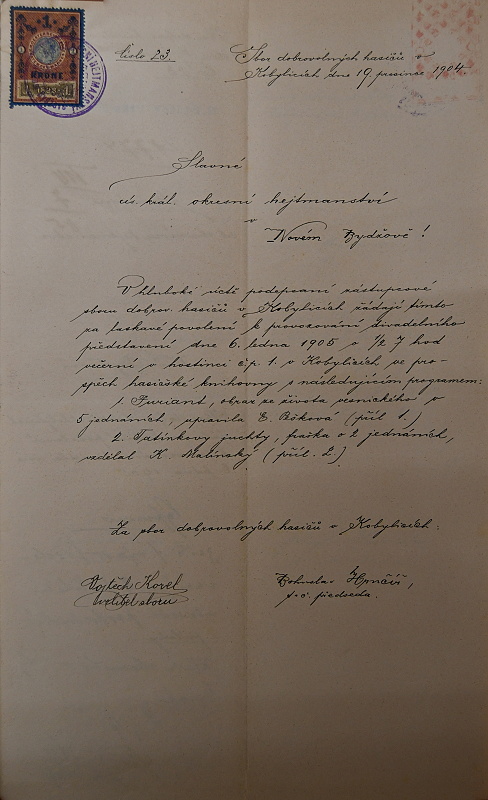 1
KRONE
1898
Číslo 23.
Sbor dobrovolných hasičů v
Kobylicích dne 19. prosince 1904.
Slavné
cís. král. okresní hejtmanství
v
Novém Bydžově!
V hluboké úctě podepsaní zástupcové
sboru dobrov. hasičů v Kobylicích žádají tímto
za laskavé povolení k provozování divadelního
představení dne 6. ledna 1905 o 1/2 7 hod
večerní v hostinci č.p. 1. v Kobylicích ve pro-
spěch hasičské knihovny s následujícím programem:
1. Furiant, obraz ze života vesnického v
5 jednáních, upravila E. Pešková (příl. 1.)
2. Tatínkovy juchty, fraška o 2 jednáních,
vzdělal K. Malínský (příl. 2.)
Za sbor dobrovolných hasičů v Kobylicích:
Vojtěch Korel
velitel sboru
Bohuslav Hrnčíř,
t. č. předseda.